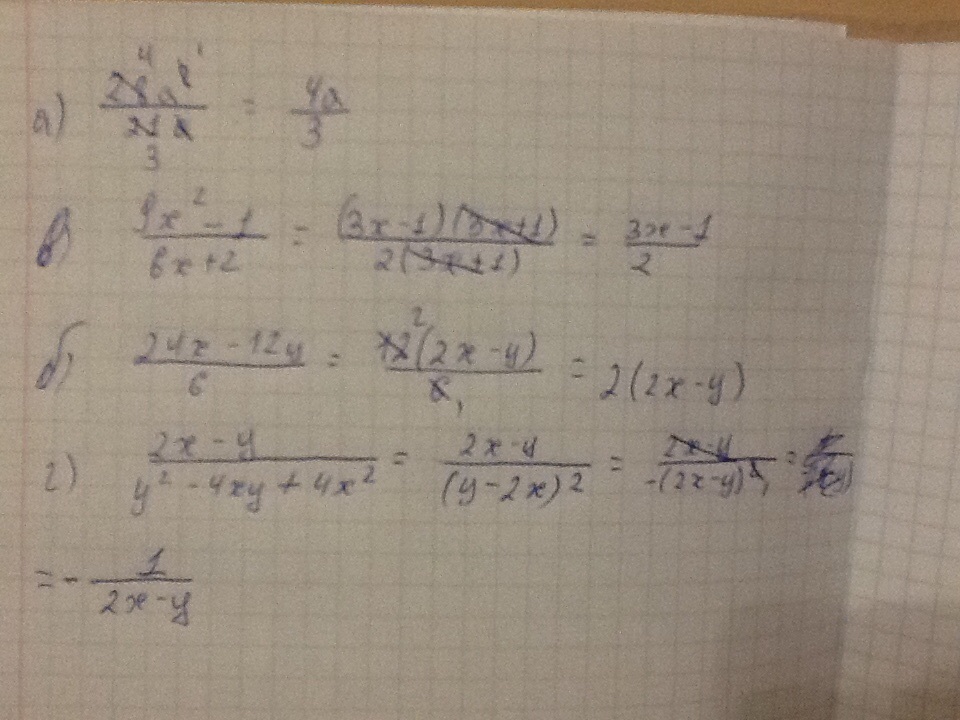 а) 28a²/21a = 4a/3
в) 9x² - 1/6x+2 = (3x-1)(3x+1)/2(3x+1) = 3x-1/2
б) 24x - 12y/6 = 12(2x-y)/6 = 2(2x-y)
г) 2x - y/y² - 4xy + 4x² = 2x-y/(y-2x)2 = 2x-y/-(2x-y)² =
= - 1/2x-y